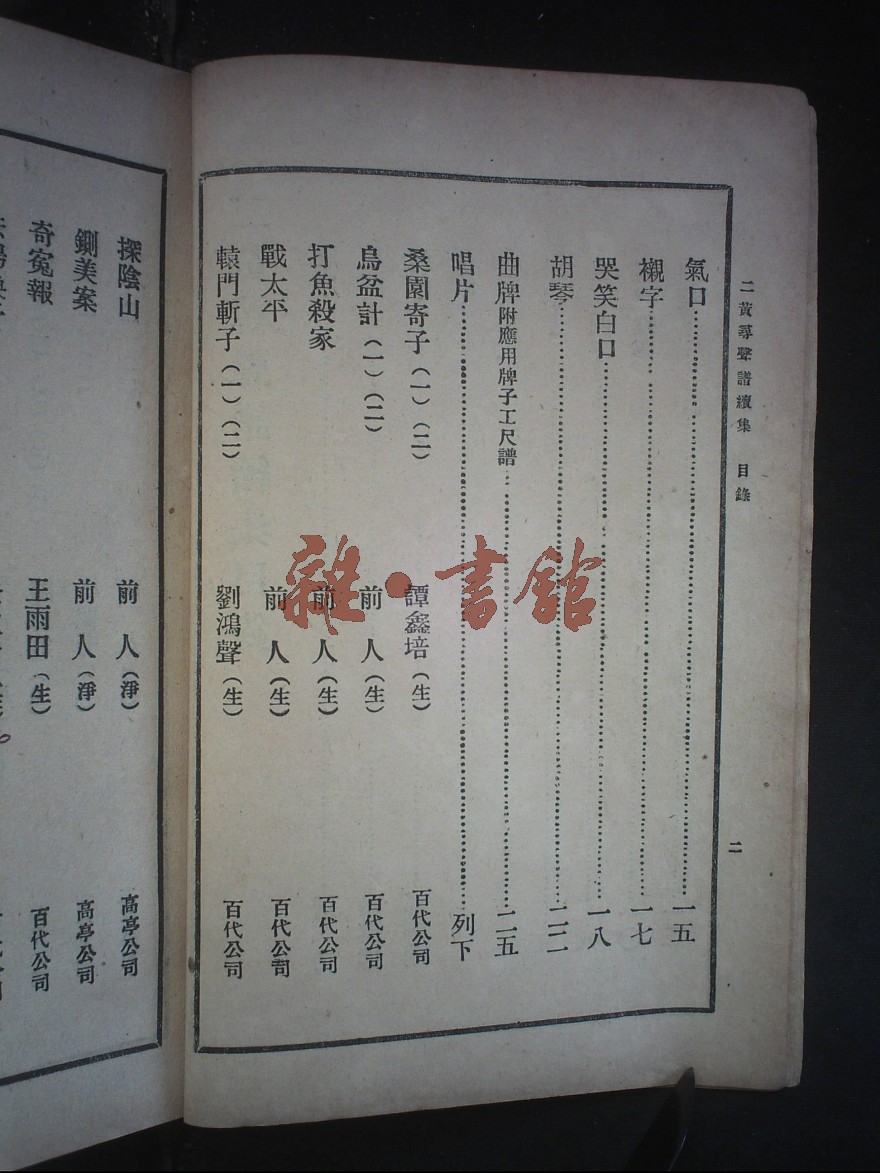 二黃尋聲譜續集　目錄
二
氣口……………………一五
襯字……………………一七
哭笑白口……………………一八
胡琴……………………二二
曲牌附應用牌子工尺譜……………………二五
唱片……………………列下
桑園寄子（一）（二）　譚鑫培（生）　百代公司
烏盆計（一）（二）　前人（生）　百代公司
打魚殺家　前人（生）　百代公司
戰太平　前人（生）　百代公司
轅門斬子（一）（二）　劉鴻聲（生）　百代公司
探陰山　前人（淨）　高亭公司
鍘美案　前人（淨）　高亭公司
奇冤報　王雨田（生）　百代公司
雜·書館